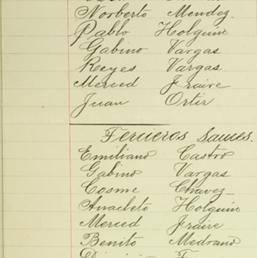 Norberto Mendez.
Pablo Holguin
Gabino Vargas
Reyes Vargas.
Merced Fraire
Juan Ortiz
Ferreros Saules.
Emiliano Castro
Gabino Vargas
Cosme Chavez
Anacleto Holguin
Merced Fraire
Benito Medrano